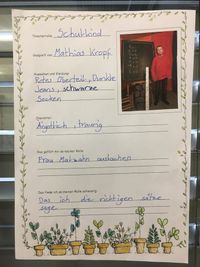 Theaterrolle: Schulkind
Gespielt von: Mathias Kropf
Aussehen und Kleidung:
Rotes Oberteil, Dunkle
Jeans, schwarze
Socken
Charakter:
Ängstlich, traurig
Das gefällt mir an meiner Rolle:
Frau Matwahn auslachen
Das finde ich an meiner Rolle schwierig:
Das ich die richtigen sätze
sage.